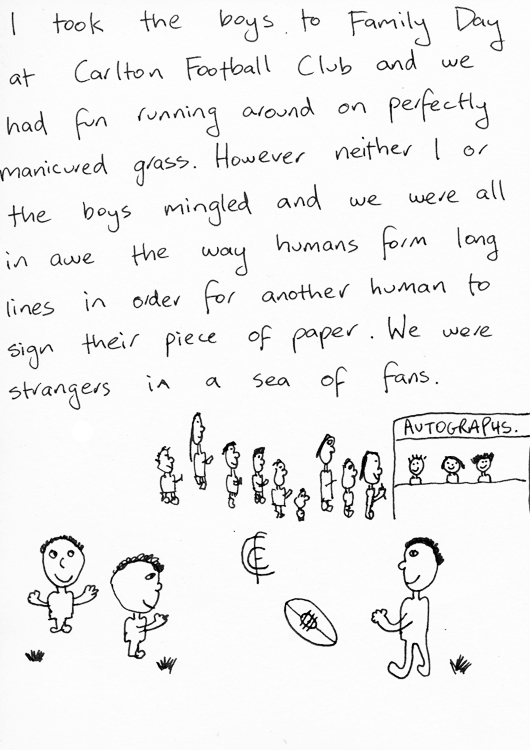 I took the boys to Family Day
at Carlton Football Club and we
had fun running around on perfectly
manicured grass. However neither I or
the boys mingled and we were all
in awe the way humans form long
lines in order for another human to
sign their piece of paper. We were
strangers in a sea of fans.
AUTOGRAPHS.
CFC